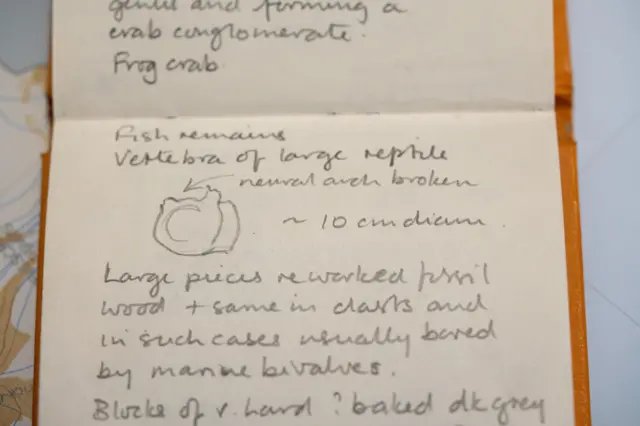 and forming a
crab conglomerate.
Frog crab
Fish remains
Vertebra of large reptile
neural arch broken
~ 10 cm diam.
Large pieces reworked fossil
wood + same in clasts and
in such cases usually bored
by marine bivalves.
Blocks of v. hard ? baked dk grey